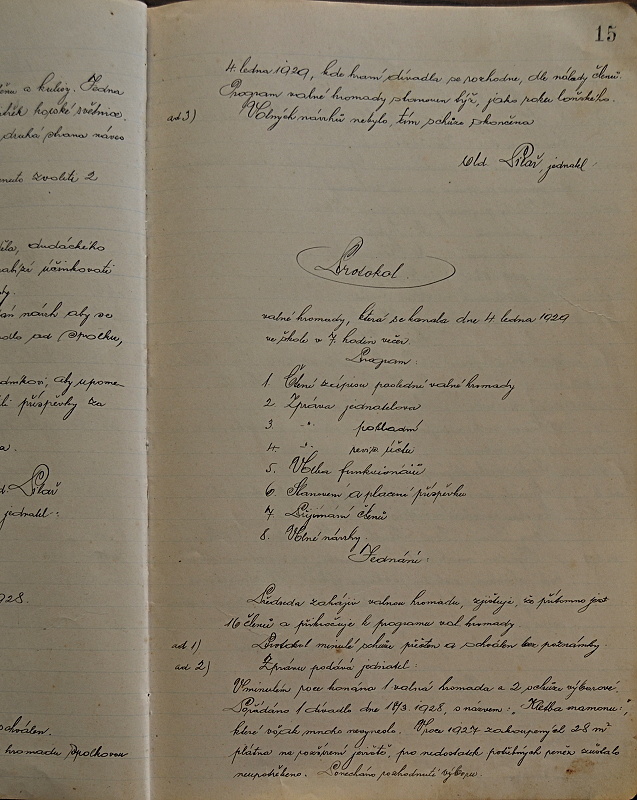 čtěnu a kulisy. Jedna
hopské světnice.
druhá strana náves
zvoliti 2
dudáckého
účinkovati
návrh aby se
ad spolku,
aby upome-
příspěvky za
Pilař
jednatel:
1928.
schválen.
hromadu Spolkovou
15
4. ledna 1929, kde hraní divadla se rozhodne, dle nálady členů.
Program valné hromady stanoven týž, jako roku loňského.
ad 3) Volných návrhů nebylo, tím schůze skončena
Old. Pilař, jednatel
Protokol
valné hromady, která se konala dne 4. ledna 1929
ve škole v 7. hodin večer.
Program:
1. Čtení zápisu poslední valné hromady
2. Zpráva jednatelova
3. -"- pokladní
4. -"- revise účtů
5. Volba funkcionářů
6. Stanovení a placení příspěvku
7. Přijímání členů
8. Volné návrhy.
Jednání:
Předseda zahájiv valnou hromadu, zjišťuje, že přítomno jest
16 členů a přikročuje k programu val. hromady.
ad 1) Protokol minulé schůze přečten a schválen bez poznámky.
ad 2) Zprávu podává jednatel:
V minulém roce konána 1 valná hromada a 2 schůze výborové.
Pořádáno 1 divadlo dne 18/3. 1928, s názvem: „Kletba mamonu",
které však mnoho nevyneslo. V roce 1927 zakoupených 28 m²
plátna na rozšíření jeviště, pro nedostatek potřebných peněz zůstalo
neupotřebeno. Ponecháno rozhodnutí výboru.